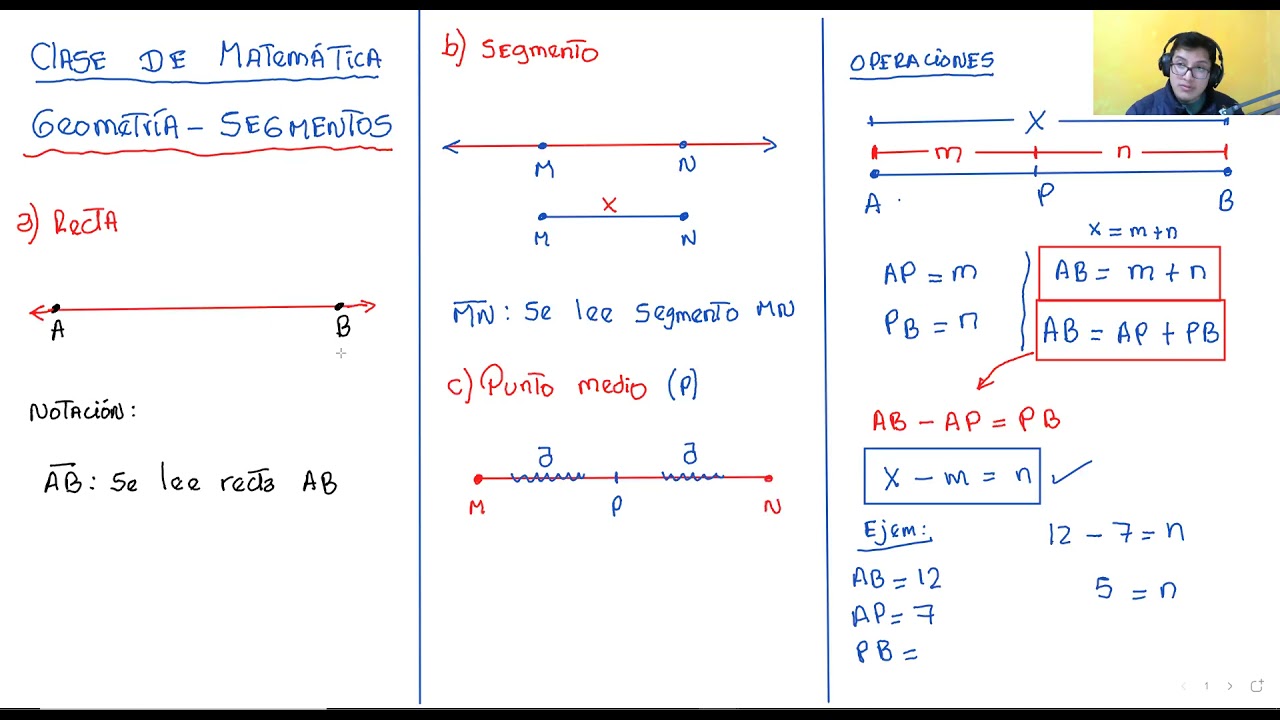 CLASE DE MATEMÁTICA
GEOMETRÍA - SEGMENTOS
a) RECTA
A B
NOTACIÓN:
AB: Se lee recta AB
b) Segmento
M N
x
M N
MN: Se lee Segmento MN
c) Punto medio (P)
a a
M P N
OPERACIONES
X
m n
A P B
x = m + n
AP = m
AB = m + n
PB = n
AB = AP + PB
AB - AP = PB
X - m = n
Ejem:
12 - 7 = n
AB = 12
5 = n
AP = 7
PB =
1